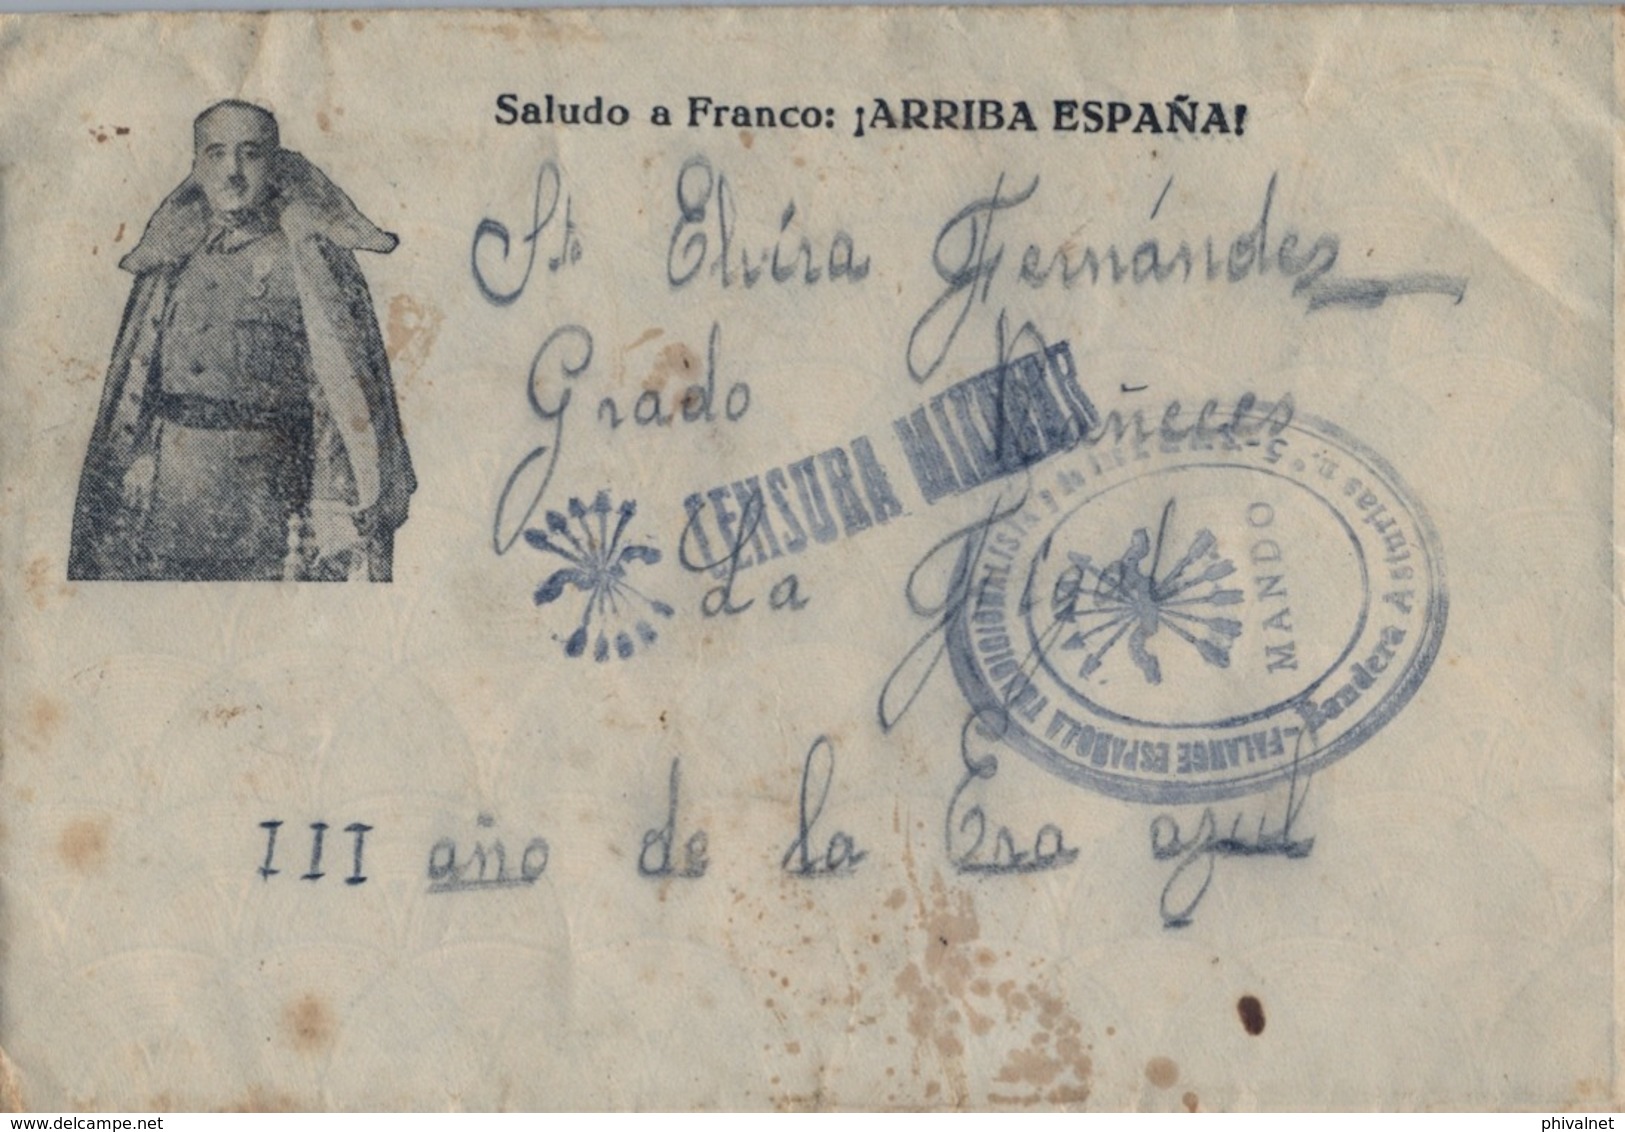 Saludo a Franco: ¡ARRIBA ESPAÑA!
Sta Elvira Fernández
Grado Báñeces
CENSURA MILITAR
La Figal
FALANGE ESPAÑOLA TRADICIONALISTA y de las J.O.N-S
Bandera Asturias n.° 5-
MANDO
III año de la Era azul
phivalnet